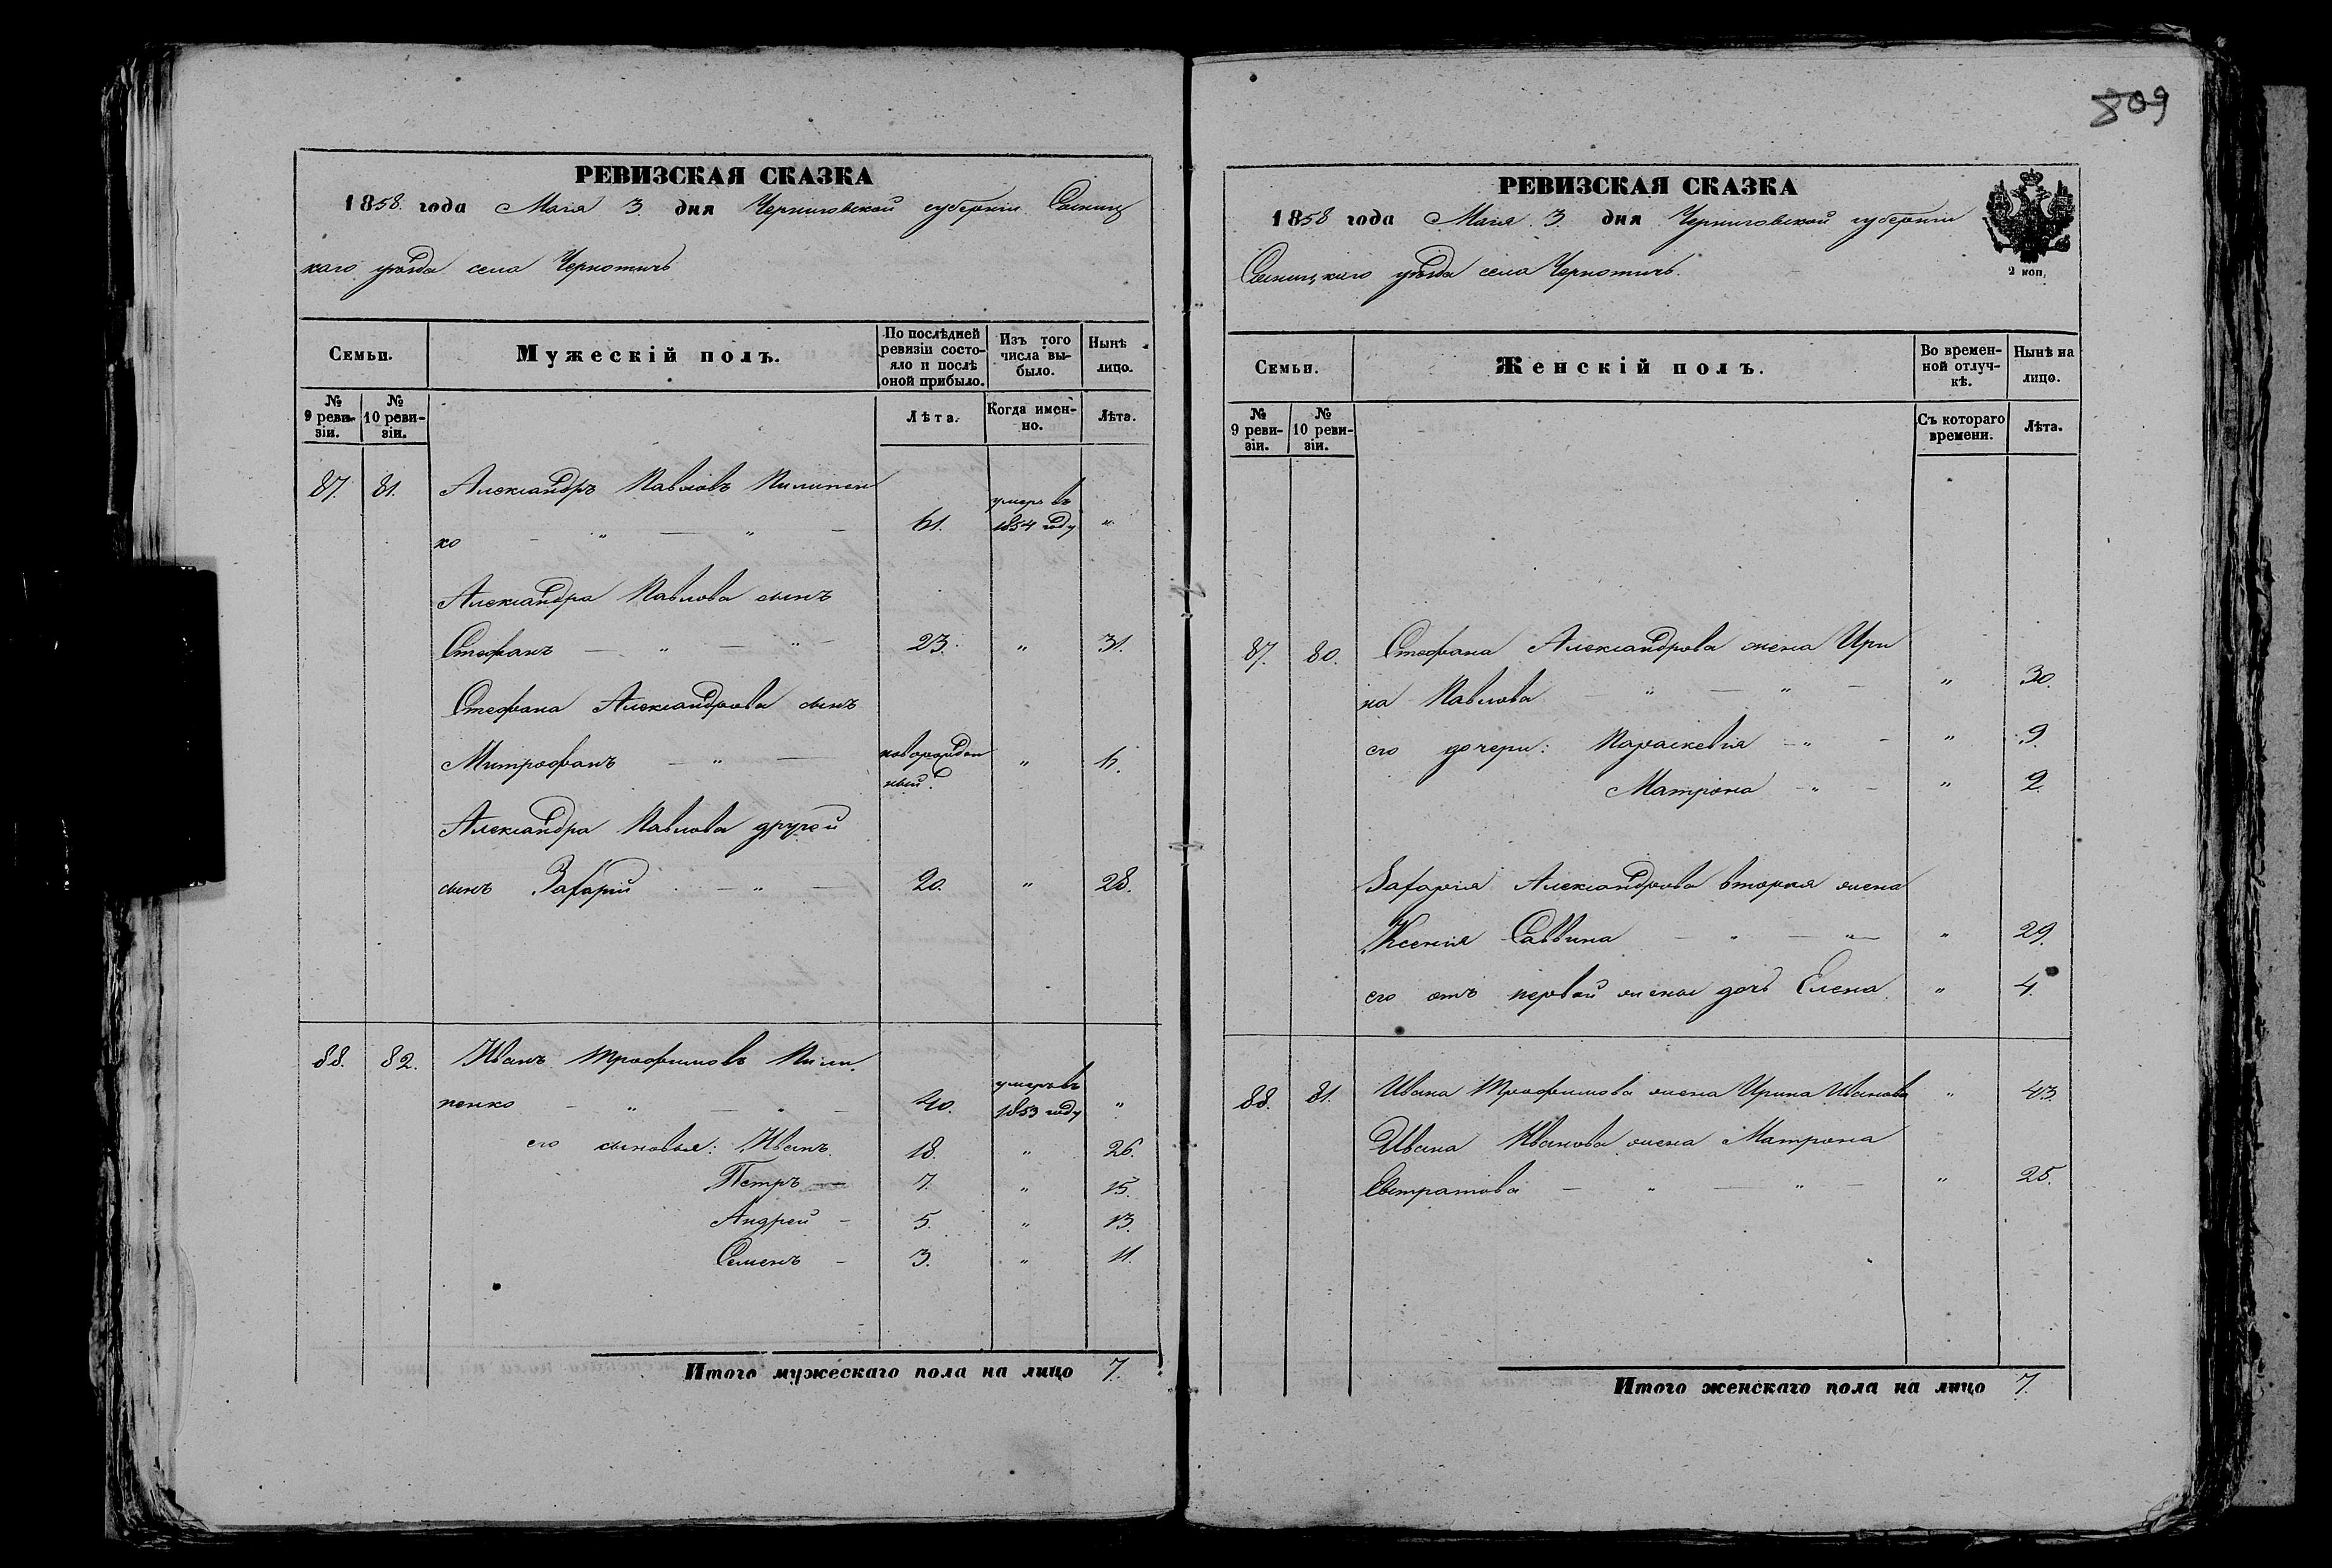 809
РЕВИЗСКАЯ СКАЗКА
1858. года Мая 3. дня Черниговской губерніи Сосниц
каго уѣзда села Чернотичъ
Семьи. Мужескій полъ. По послѣдней ревизіи состояло и послѣ оной прибыло. Изъ того числа выбыло. Нынѣ лицо.
№ 9 ревизіи. № 10 ревизіи. Лѣта. Когда именно. Лѣта.
87. 81. Александръ Павловъ Пилипен
ко - " - " - 61. умеръ въ 1854 году "
Александра Павлова сынъ
Стефанъ - " - " - 23. " 31.
Стефана Александрова сынъ
Митрофанъ - " - новорожденный. "
Александра Павлова другой
сынъ Захарій - " - 20. " 28.
88. 82. Иванъ Трофимовъ Пили
пенко - " - " - 40. умеръ въ 1853 году "
его сыновья: Иванъ 18. " 26.
Петръ - 7. " 15.
Андрей - 5. " 13.
Семенъ - 3. " 11.
Итого мужескаго пола на лицо 7.
РЕВИЗСКАЯ СКАЗКА
1858 года Мая 3. дня Черниговской губерніи
Сосницкаго уѣзда села Чернотичъ.
2 коп.
Семьи. Женскій полъ. Во временной отлучкѣ. Нынѣ на лицо.
№ 9 ревизіи. № 10 ревизіи. Съ котораго времени. Лѣта.
87. 80. Стефана Александрова жена Ири
на Павлова - " - " - " 30.
его дочери: Параскевія - " - " 9.
Матрона - " - " 2.
Захарія Александрова вторая жена
Ксенія Саввина - " - " - " 29.
его отъ первой жены дочь Елена " 4.
88. 81. Ивана Трофимова жена Ирина Иванова " 43.
Ивана Иванова жена Матрона
Евстратова - " - " - " 25.
Итого женскаго пола на лицо 7.